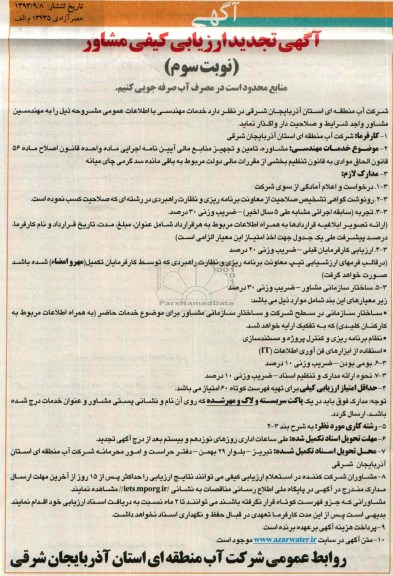 آگهی
تاریخ انتشار: ۱۳۹۳/۹/۸
عصر آزادی ۱۳۴۳۵ م الف
آگهی تجدید ارزیابی کیفی مشاور
(نوبت سوم)
منابع محدود است در مصرف آب صرفه جویی کنیم.
شرکت آب منطقه ای استان آذربایجان شرقی در نظر دارد خدمات مهندسی با اطلاعات عمومی مشروحه ذیل را به مهندسین
مشاور واجد شرایط و صلاحیت دار واگذار نماید
۱-کارفرما: شرکت آب منطقه ای استان آذربایجان شرقی
۲-موضوع خدمات مهندسی: مشاوره، تامین و تجهیز منابع مالی آیین نامه اجرایی ماده واحده قانون اصلاح ماده ۵۶
قانون الحاق موادی به قانون تنظیم بخشی از مقررات مالی دولت مربوط به باقی مانده سد گرمی چای میانه
۳-مدارک لازم:
۳-۱. درخواست و اعلام آمادگی از سوی شرکت
۳-۲. رونوشت گواهی تشخیص صلاحیت از معاونت برنامه ریزی و نظارت راهبردی در رشته ای که صلاحیت کسب نموده است.
۳-۳. تجربه (سابقه اجرائی مشابه طی ۵ سال اخیر) – ضریب وزنی ۳۰ درصد.
(ارائه تصویر ابلاغیه قراردادها به همراه اطلاعات مربوط به هر قرارداد شامل عنوان، مبلغ، مدت، تاریخ قرارداد و نام کارفرما،
درصد پیشرفت طی یک جدول جهت اخذ امتیاز این معیار الزامی است)
۳-۴. ارزیابی کارفرمایان قبلی – ضریب وزنی ۲۰ درصد
(در قالب فرمهای ارزشیابی تیپ معاونت برنامه ریزی و نظارت راهبردی که توسط کارفرمایان تکمیل (مهر و امضاء) شده باشد
صورت خواهد گرفت)
۳-۵. ساختار سازمانی مشاور – ضریب وزنی ۳۰ درصد
زیر معیارهای این بند شامل موارد ذیل می باشد:
• ساختار سازمانی در سطح شرکت و ساختار سازمانی مشاور برای موضوع خدمات حاضر (به همراه اطلاعات مربوط به
کارکنان کلیدی) که به تفکیک ارایه خواهد شد.
• نظام برنامه ریزی و کنترل پروژه و مستندسازی
• استفاده از ابزارهای فن آوری اطلاعات (IT)
۳-۶. بومی بودن – ضریب وزنی ۱۰ درصد
۳-۷. نحوه ارائه مدارک و تنظیم اسناد – ضریب وزنی ۱۰ درصد
۴-حداقل امتیاز ارزیابی کیفی برای تهیه فهرست کوتاه ۶۰ امتیاز می باشد.
توجه: مدارک فوق باید در یک پاکت سربسته و لاک و مهر شده که روی آن نام و نشانی پستی مشاور و عنوان خدمات درج شده
باشد، ارسال گردد.
۵-رشته کاری مورد نظر: به شرح بند ۲-۳
۶-مهلت تحویل اسناد تکمیل شده: طی ساعات اداری روزهای نوزدهم و بیستم بعد از درج آگهی تجدید.
۷-محل تحویل اسناد تکمیل شده: تبریز – بلوار ۲۹ بهمن – دفتر حراست و امور محرمانه شرکت آب منطقه ای استان
آذربایجان شرقی
۸-مشاوران شرکت کننده در استعلام ارزیابی کیفی می توانند نتایج ارزیابی را حداکثر پس از ۱۵ روز از آخرین مهلت ارسال
مدارک مندرج در آگهی در پایگاه ملی اطلاع رسانی مناقصات به نشانی //iets.mporg.ir// مشاهده نمایند.
مشاورانی که جزو فهرست کوتاه قرار نگرفته باشند، می توانند تا ۲ ماه نسبت به دریافت اسناد ارزیابی خود اقدام نمایند.
بدیهی است پس از این مدت کارفرما تعهدی در قبال حفظ و نگهداری اسناد نخواهد داشت.
۹-پرداخت هزینه آگهی برعهده برنده است.
۱۰-متن آگهی در سایت www.azarwater.ir موجود است.
روابط عمومی شرکت آب منطقه ای استان آذربایجان شرقی
ParsNamadData